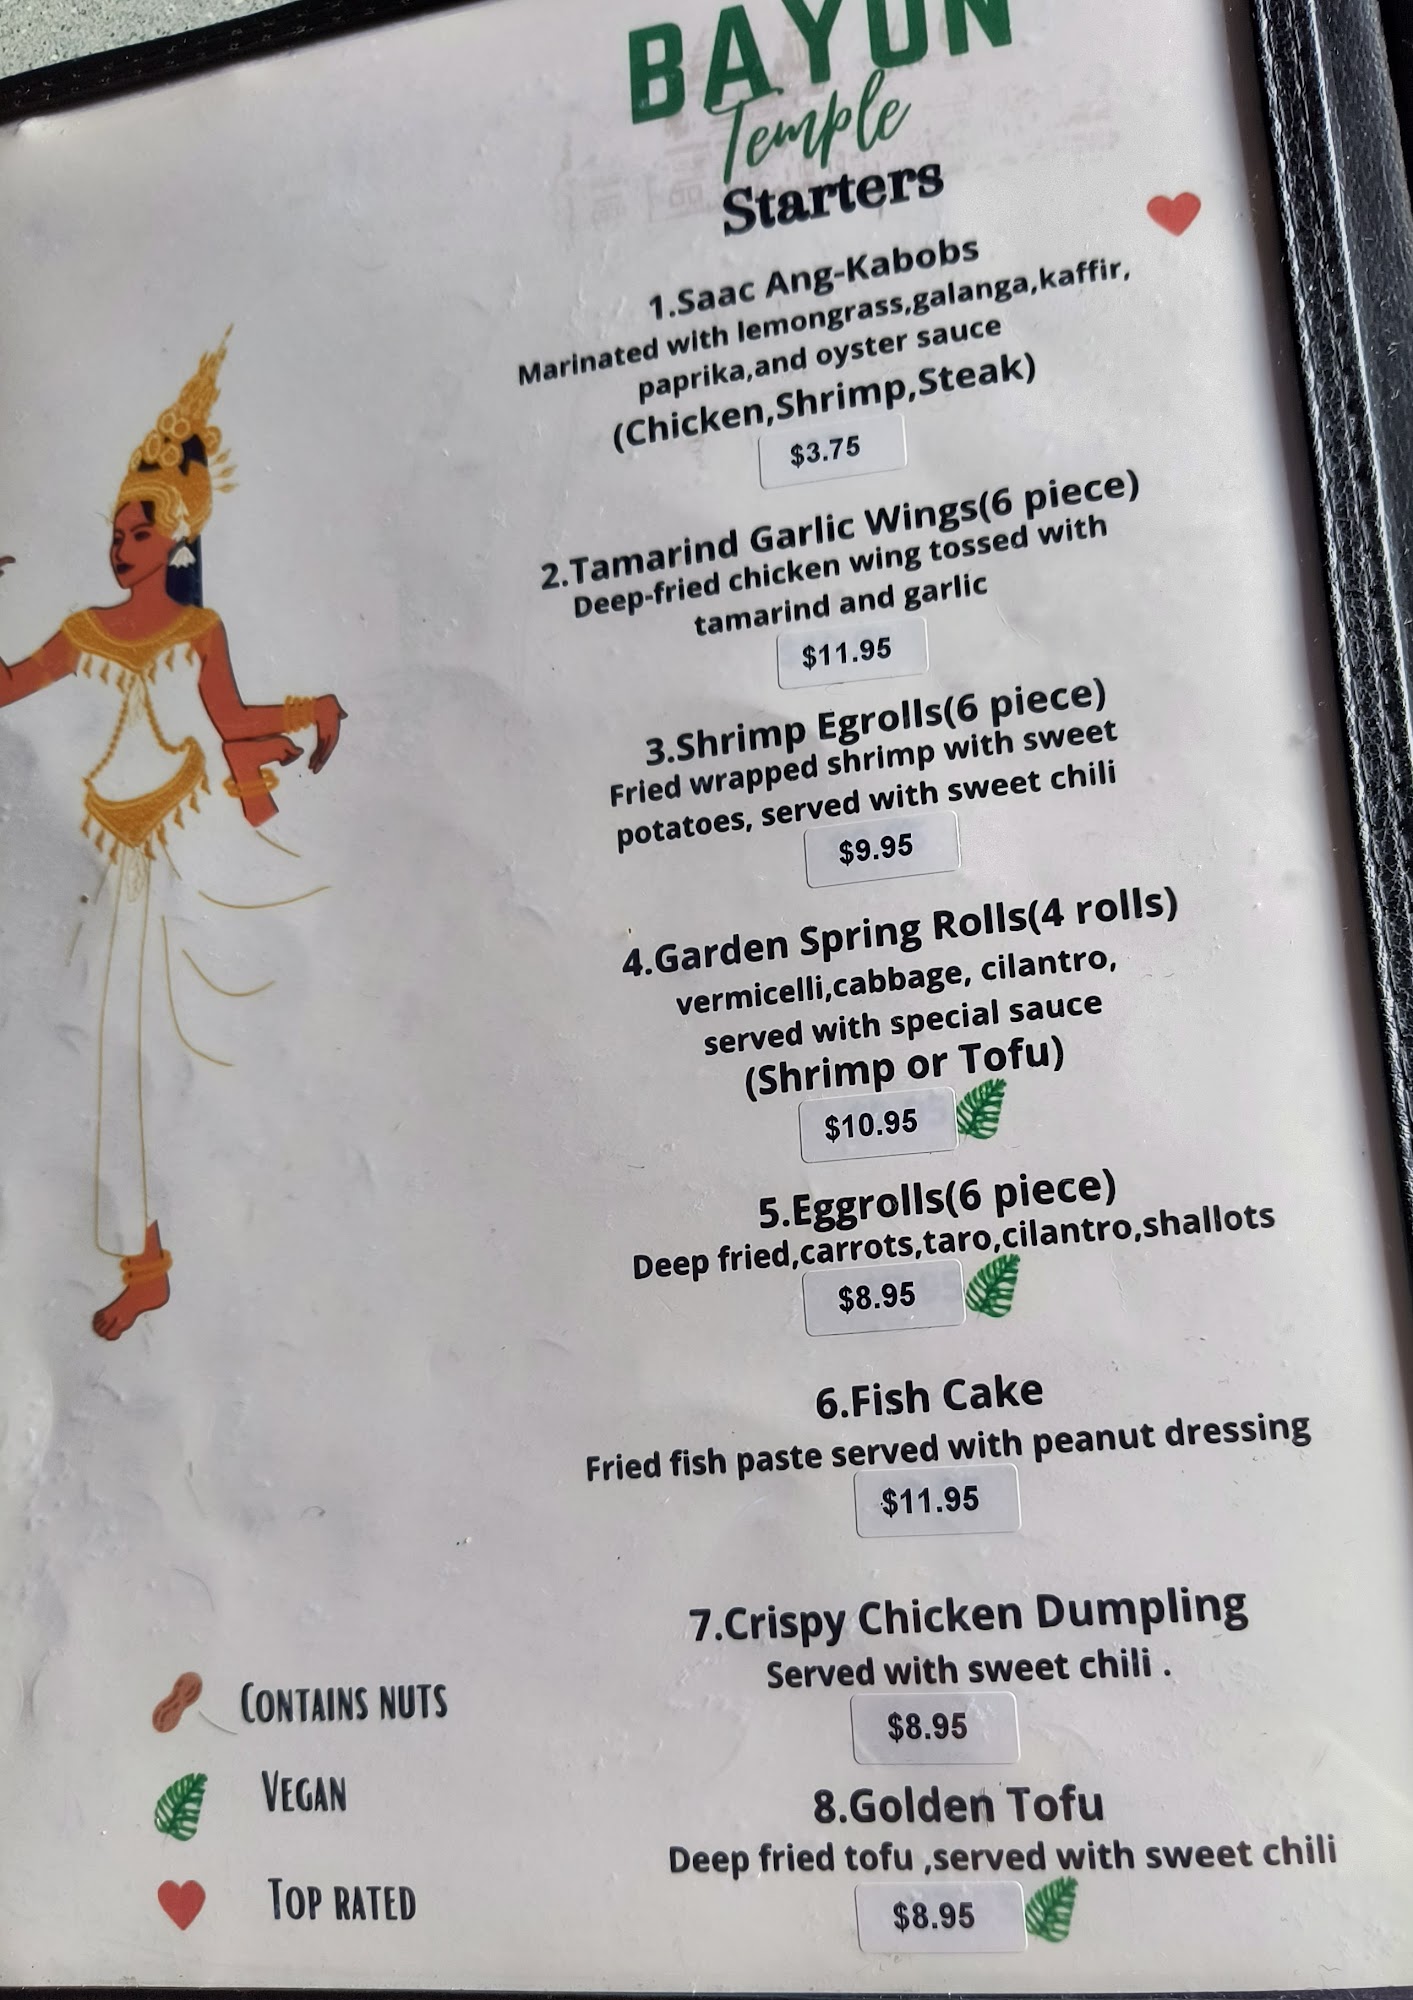 BAYON
Temple
Starters
1.Saac Ang-Kabobs
Marinated with lemongrass,galanga,kaffir,
paprika,and oyster sauce
(Chicken,Shrimp,Steak)
$3.75
2.Tamarind Garlic Wings(6 piece)
Deep-fried chicken wing tossed with
tamarind and garlic
$11.95
3.Shrimp Egrolls(6 piece)
Fried wrapped shrimp with sweet
potatoes, served with sweet chili
$9.95
4.Garden Spring Rolls(4 rolls)
vermicelli,cabbage, cilantro,
served with special sauce
(Shrimp or Tofu)
$10.95
5.Eggrolls(6 piece)
Deep fried,carrots,taro,cilantro,shallots
$8.95
6.Fish Cake
Fried fish paste served with peanut dressing
$11.95
7.Crispy Chicken Dumpling
Served with sweet chili .
$8.95
8.Golden Tofu
Deep fried tofu ,served with sweet chili
$8.95
CONTAINS NUTS
VEGAN
TOP RATED